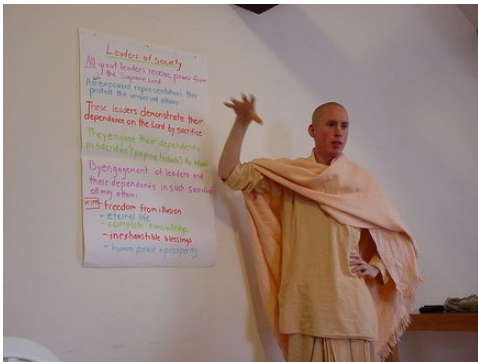 Leaders of Society
All great leaders receive power from
the Supreme Lord
As empowered representatives they
protect the universal affairs
These leaders demonstrate their
dependance on the Lord by sacrifice
They engage their dependents
in sacrifice (paying tribute) to
By engagement of leaders and
their dependants in such sacrifice
all may attain:
- freedom from illusion
- eternal life
- complete knowledge
- inexhaustible blessings
- human peace + prosperity